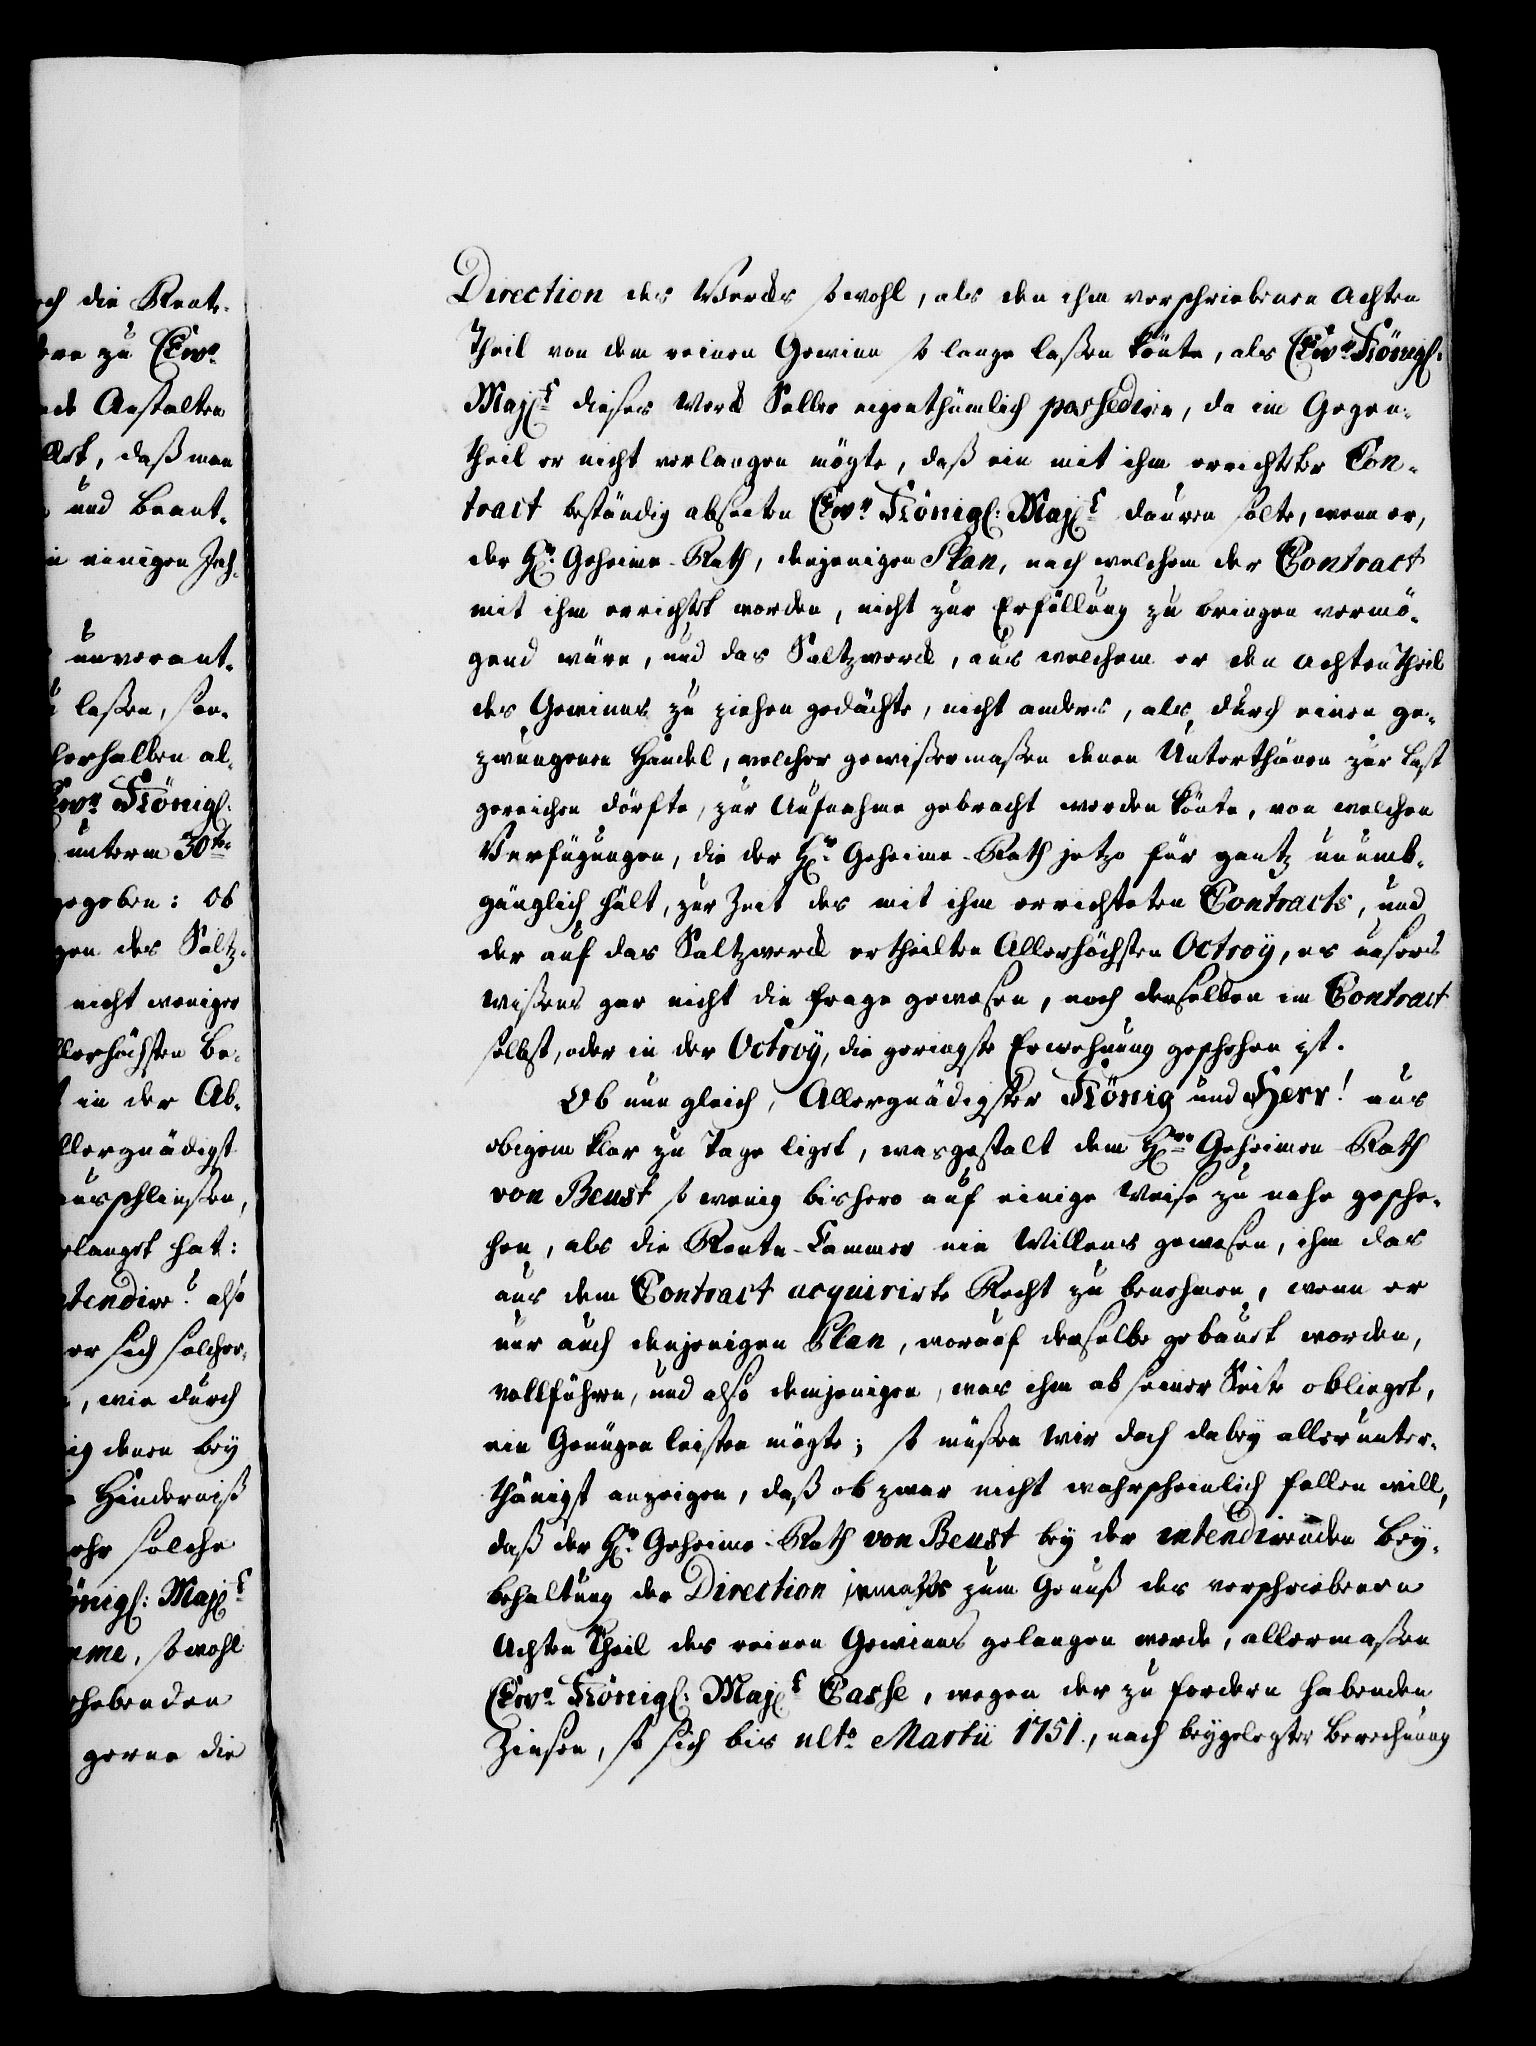 ch die Rente-
zu Ewr.
Anstalten
, daß man
und Beant-
einigen Jah-
unverant-
laßen, son-
halben al-
Ewr. Königl:
unterm 30ten
gegeben: ob
des Saltz-
nicht weniger
llerhöchsten Be-
in der Ab-
llergnädigst
ausschließen,
rlanget hat:
tendire? also
er sich solcher-
, wie durch
ig denen bey
Hinderniß
solche
önigl: Majt.
, sowohl
habenden
gerne die
Direction des Wercks sowohl, als den ihm verschriebenen Achten
Theil von dem reinen Gewinn so lange laßen könte, als Ewr. Königl:
Majt. dieses Werck Selber eigenthümlich possediren, da im Gegen-
theil er nicht verlangen mögte, daß ein mit ihm errichteter Con-
tract beständig abseiten Ewr. Königl: Majt. dauren solte, wenn er,
der Hr. Geheime-Rath, denjenigen Plan, nach welchem der Contract
mit ihm errichtet worden, nicht zur Erfüllung zu bringen vermö-
gend wäre, und das Saltzwerck, aus welchem er den Achten Theil
des Gewinns zu ziehen gedächte, nicht anders, als durch einen ge-
zwungenen Handel, welcher gewißermaßen denen Unterthanen zur Last
gereichen dörfte, zur Aufnahme gebracht werden könte, von welchen
Verfügungen, die der Hr. Geheime-Rath jetzo für gantz unumb-
gänglich hält, zur Zeit des mit ihm errichteten Contracts, und
der auf das Saltzwerck ertheilten Allerhöchsten Octroÿ, es unsers
wißens gar nicht die Frage gewesen, noch derselben im Contract
selbst, oder in der Octroÿ, die geringste Erwehnung geschehen ist.
Ob nun gleich, Allergnädigster König und Herr! aus
obigem klar zu Tage liget, wasgestalt dem Hrn. Geheimen-Rath
von Beust so wenig bishero auf einige Weise zu nahe gesche-
hen, als die Rente-Cammer nie Willens gewesen, ihm das
aus dem Contract acquirirte Recht zu benehmen, wenn er
nur auch denjenigen Plan, worauf derselbe gebauet worden,
vollführen, und also demjenigen, was ihm ab seiner Seite oblieget,
ein Genügen leisten mögte; so müßen wir doch dabey allerunter-
thänigst anzeigen, daß ob zwar nicht wahrscheinlich fallen will,
daß der Hr. Geheime-Rath von Beust bey der intendirenden Bey-
behaltung der Direction jemahls zum Genuß des verschriebenen
Achten Theil des reinen Gewinns gelangen werde, allermaßen
Ewr. Königl: Majt. Casse, wegen der zu fordern habenden
Zinsen, so sich bis ulto. Martii 1751., nach beygelegter Berechnung